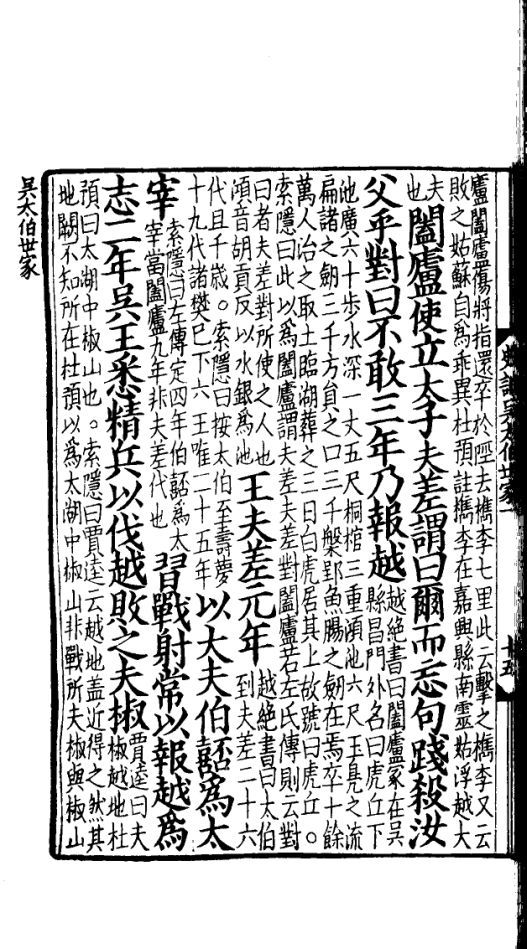 盧闔盧傷將指還卒於陘去檇李七里此云擊之檇李又云
敗之姑蘇自爲乖異杜預註檇李在嘉興縣南靈姑浮越大
夫
也
闔盧使立太子夫差謂曰爾而忘句踐殺汝
父乎對曰不敢三年乃報越
越絕書曰闔廬冢在吳
縣昌門外名曰虎丘下
池廣六十步水深一丈五尺桐棺三重澒池六尺玉鳧之流
扁諸之劒三千方員之口三千槃郢魚腸之劒在焉卒十餘
萬人治之取土臨湖葬之三日白虎居其上故號曰虎丘。
索隱曰此以爲闔盧謂夫差夫差對闔盧若左氏傳則云對
曰者夫差對所使之人也
澒音胡貢反以水銀爲池
王夫差元年
越絕書曰太伯
到夫差二十六
代且千歲。索隱曰按太伯至壽夢
十九代諸樊已下六王唯二十五年
以大夫伯嚭爲太
宰
索隱曰左傳定四年伯嚭爲太
宰當闔廬九年非夫差代也
習戰射常以報越爲
志二年吳王悉精兵以伐越敗之夫椒
賈逵曰夫
椒越地杜
預曰太湖中椒山也。索隱曰賈逵云越地盖近得之然其
地闕不知所在杜預以爲太湖中椒山非戰所夫椒與椒山
吳太伯世家